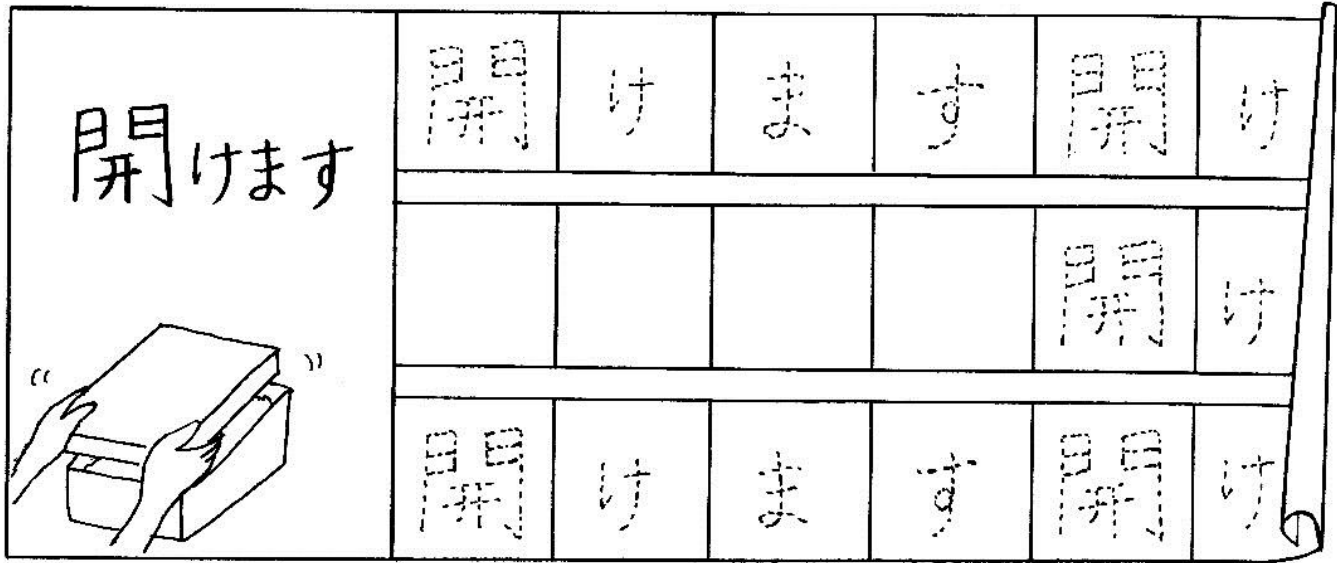 開けます
開けます開け
開け
開けます開け